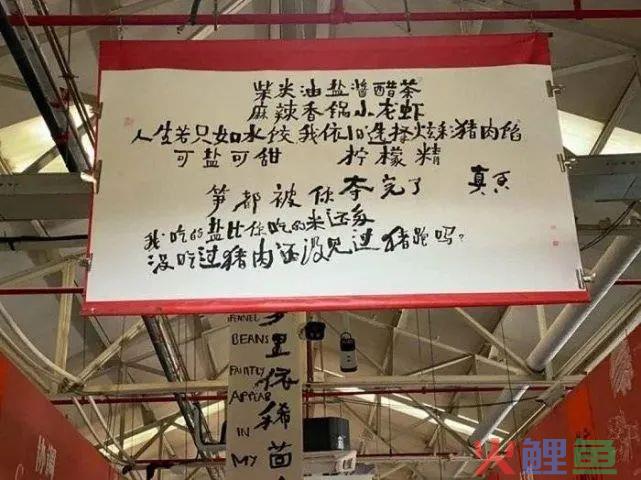 柴米油盐酱醋茶
麻辣香锅小龙虾
人生若只如水饺我依旧选择炫彩猪肉馅
可盐可甜 柠檬精
笋都被你夺完了 真香
我吃的盐比你吃的米还多
没吃过猪肉还没见过猪跑吗?
梦里依稀茴
FENNEL
BEANS
FAINTLY
APPEAR
IN
MY
火鲤鱼